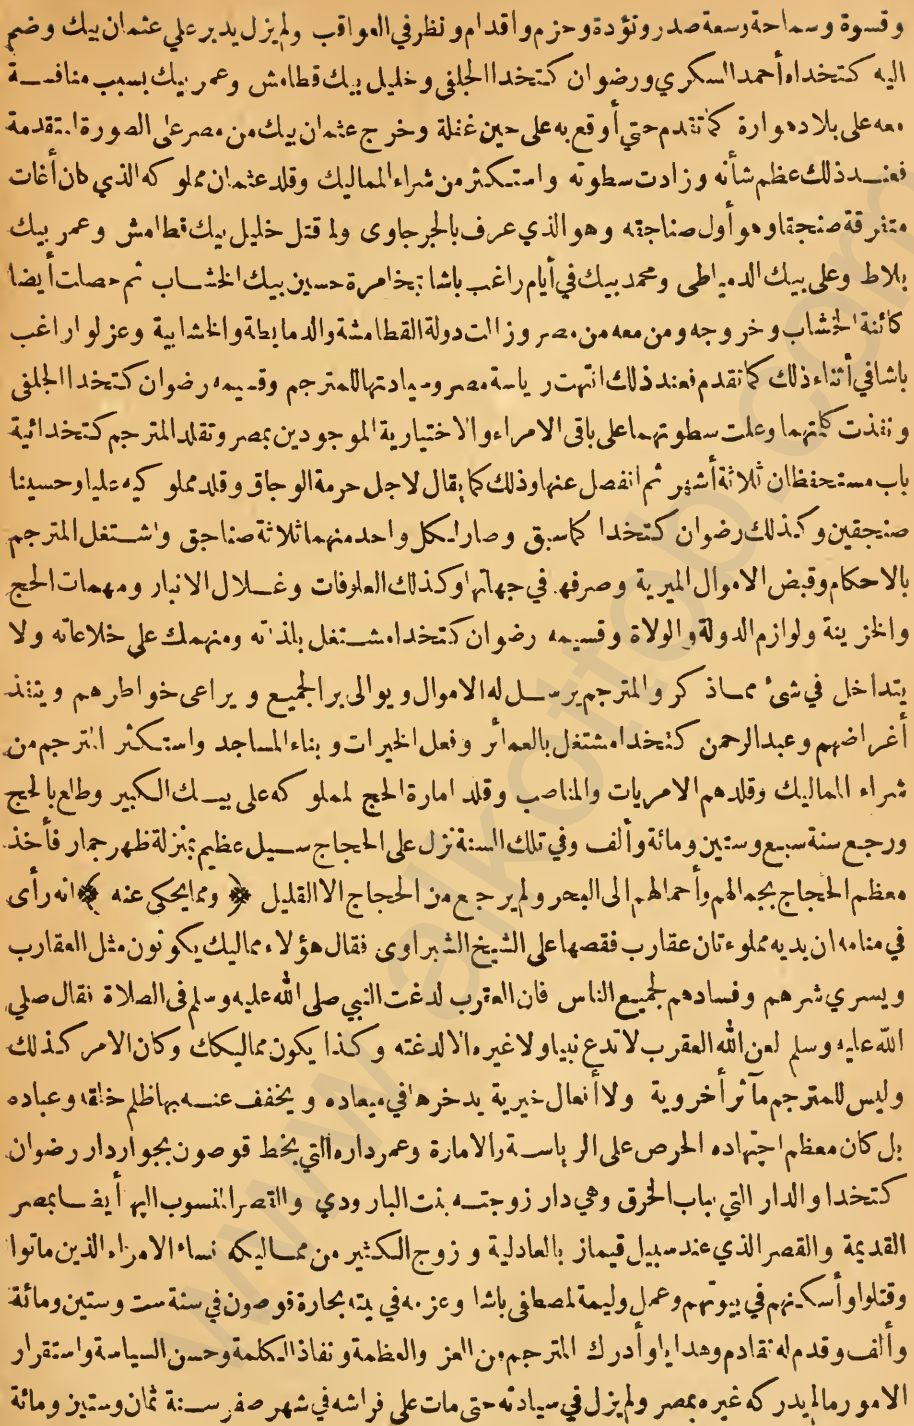 وقسوة وسماحة وسعة صدر وتؤدة وحزم واقدام ونظر في العواقب ولم يزل يدبر على عثمان بيك وضم
اليه كتخداه أحمد السكري ورضوان كتخدا الجلفى وخليل بيك قطامش وعمر بيك بسبب منافسة
معه على بلاد هوارة كما تقدم حتي أوقع به على حين غفلة وخرج عثمان بيك من مصر على الصورة المتقدمة
فعند ذلك عظم شأنه وزادت سطوته واستكثر من شراء المماليك وقلد عثمان مملوكه الذي كان أغات
متفرقة صنجقا وهو أول صناجقه وهو الذي عرف بالجرجاوى ولما قتل خليل بيك قطامش وعمر بيك
بلاط وعلى بيك الدمياطى ومحمد بيك في أيام راغب باشا بمخامرة حسين بيك الخشاب ثم حصلت أيضا
كائنة الخشاب وخروجه ومن معه من مصر وزالت دولة القطامشة والدمايطة والخشابية وعزلوا راغب
باشا في أثناء ذلك كما تقدم فعند ذلك انتهت رياسة مصر وسيادتها للمترجم وقسيمه رضوان كتخدا الجلفى
ونفذت كلمتهما وعلت سطوتهما على باقى الامراء والاختيارية الموجودين بمصر وتقلد المترجم كتخدائية
باب مستحفظان ثلاثة أشهر ثم انفصل عنها وذلك كما يقال لاجل حرمة الوجاق وقلد مملوكيه عليا وحسينا
صنجقين وكذلك رضوان كتخدا كما سبق وصار لكل واحد منهما ثلاثة صناجق واشتغل المترجم
بالاحكام وقبض الاموال الميرية وصرفها في جهاتها وكذلك العلوفات وغلال الانبار ومهمات الحج
والخزينة ولوازم الدولة والولاة وقسيمه رضوان كتخدا مشتغل بلذاته ومنهمك على خلاعاته ولا
يتداخل في شئ مما ذكر والمترجم يرسل له الاموال ويوالى بر الجميع ويراعى خواطرهم وينفذ
أغراضهم وعبد الرحمن كتخدا مشتغل بالعمائر وفعل الخيرات وبناء المساجد واستكثر المترجم من
شراء المماليك وقلدهم الامريات والمناصب وقلد امارة الحج لمملوكه على بيك الكبير وطلع بالحج
ورجع سنة سبع وستين ومائة وألف وفي تلك السنة نزل على الحجاج سيل عظيم بمنزلة ظهر حمار فأخذ
معظم الحجاج بجمالهم وأحمالهم الى البحر ولم يرجع من الحجاج الا القليل ﴿ ومما يحكى عنه ﴾ انه رأى
في منامه ان يديه مملوءتان عقارب فقصها على الشيخ الشبراوى فقال هؤلاء مماليك يكونون مثل العقارب
ويسري شرهم وفسادهم لجميع الناس فان العقرب لدغت النبي صلى الله عليه وسلم في الصلاة فقال صلى
الله عليه وسلم لعن الله العقرب لا تدع نبيا ولا غيره الا لدغته وكذا يكون مماليكك وكان الامر كذلك
وليس للمترجم مآثر أخروية ولا أفعال خيرية يدخرها في ميعاده ويخفف عنه بها ظلم خلقه وعباده
بل كان معظم اجتهاده الحرص على الرياسة والامارة وعمر داره التي بخط قوصون بجوار دار رضوان
كتخدا والدار التي بباب الخرق وهي دار زوجته بنت البارودي والقصر المنسوب اليها أيضا بمصر
القديمة والقصر الذي عند سبيل قيماز بالعادلية وزوج الكثير من مماليكه نساء الامراء الذين ماتوا
وقتلوا وأسكنهم في بيوتهم وعمل وليمة لمصطفى باشا وعزمه في بيته بحارة قوصون في سنة ست وستين ومائة
وألف وقدم له تقادم وهدايا وأدرك المترجم من العز والعظمة ونفاذ الكلمة وحسن السياسة واستقرار
الامور ما لم يدركه غيره بمصر ولم يزل في سيادته حتى مات على فراشه في شهر صفر سنة ثمان وستين ومائة